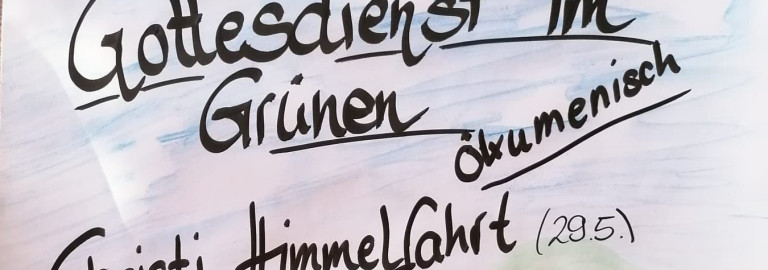 Gottesdienst im
Grünen
ökumenisch
Christi Himmelfahrt (29.5.)